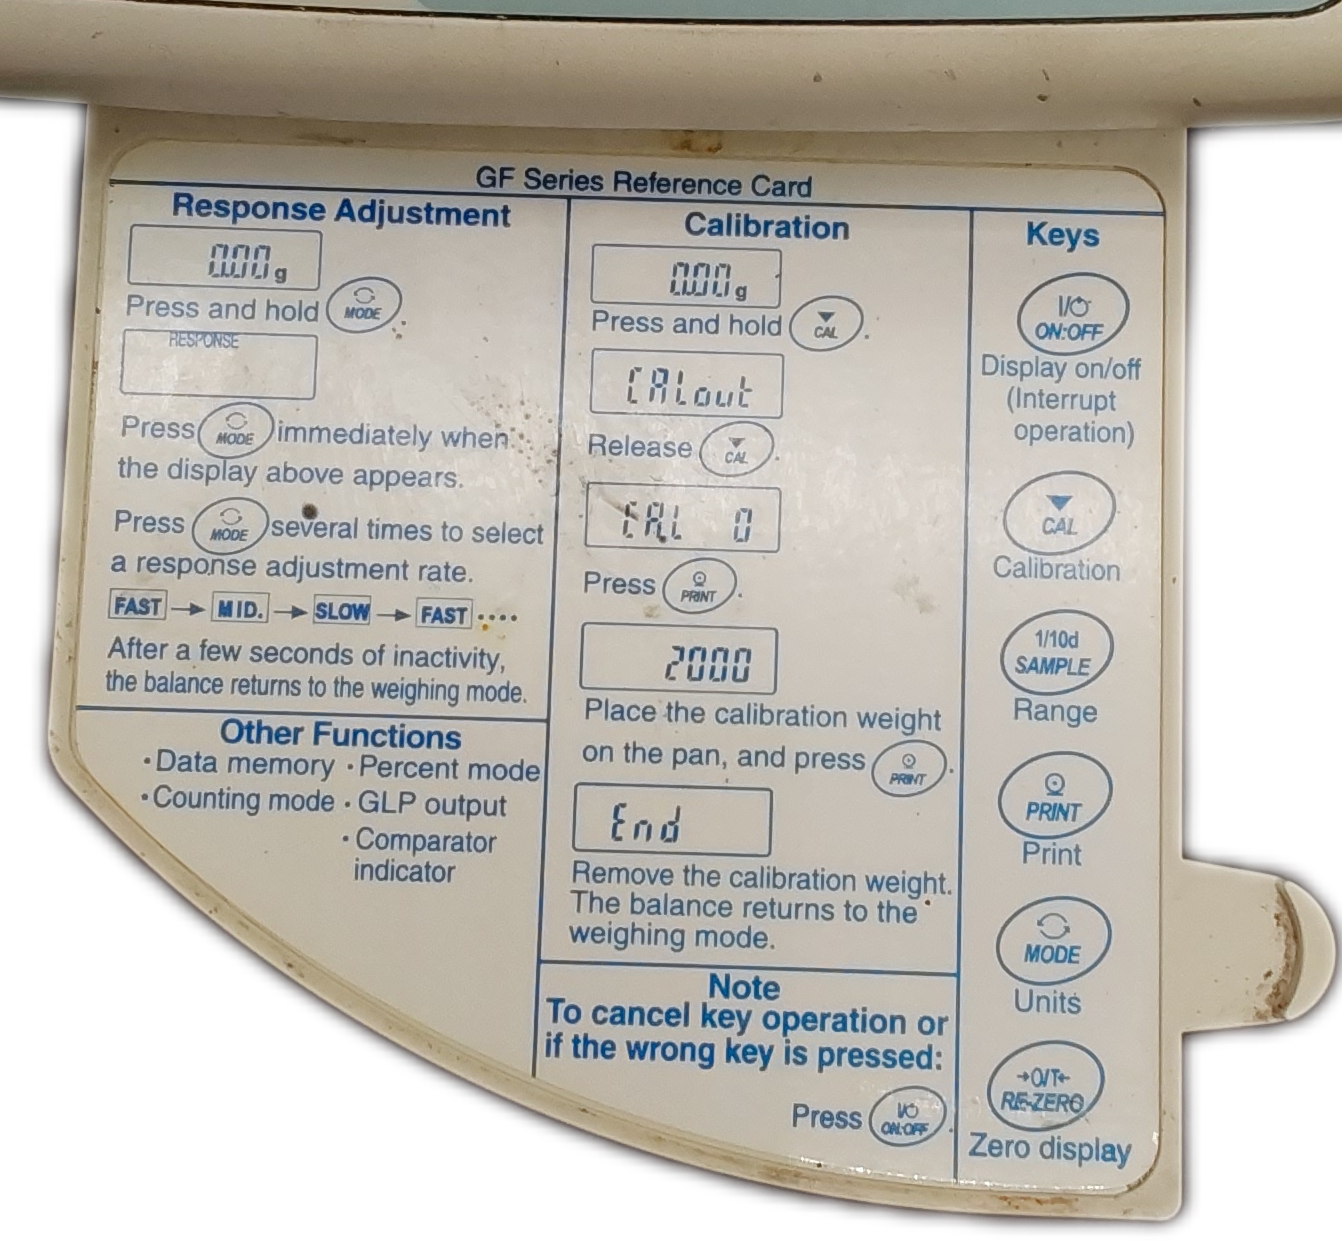 GF Series Reference Card
Response Adjustment
0.00 g
Press and hold MODE.
RESPONSE
Press MODE immediately when
the display above appears.
Press MODE several times to select
a response adjustment rate.
FAST → MID. → SLOW → FAST ····
After a few seconds of inactivity,
the balance returns to the weighing mode.
Other Functions
·Data memory ·Percent mode
·Counting mode ·GLP output
·Comparator
indicator
Calibration
0.00 g
Press and hold CAL.
CALout
Release CAL.
CAL 0
Press PRINT.
2000
Place the calibration weight
on the pan, and press PRINT.
End
Remove the calibration weight.
The balance returns to the
weighing mode.
Note
To cancel key operation or
if the wrong key is pressed:
Press I/⏻ ON:OFF.
Keys
I/⏻
ON:OFF
Display on/off
(Interrupt
operation)
CAL
Calibration
1/10d
SAMPLE
Range
PRINT
Print
MODE
Units
→0/T←
RE-ZERO
Zero display